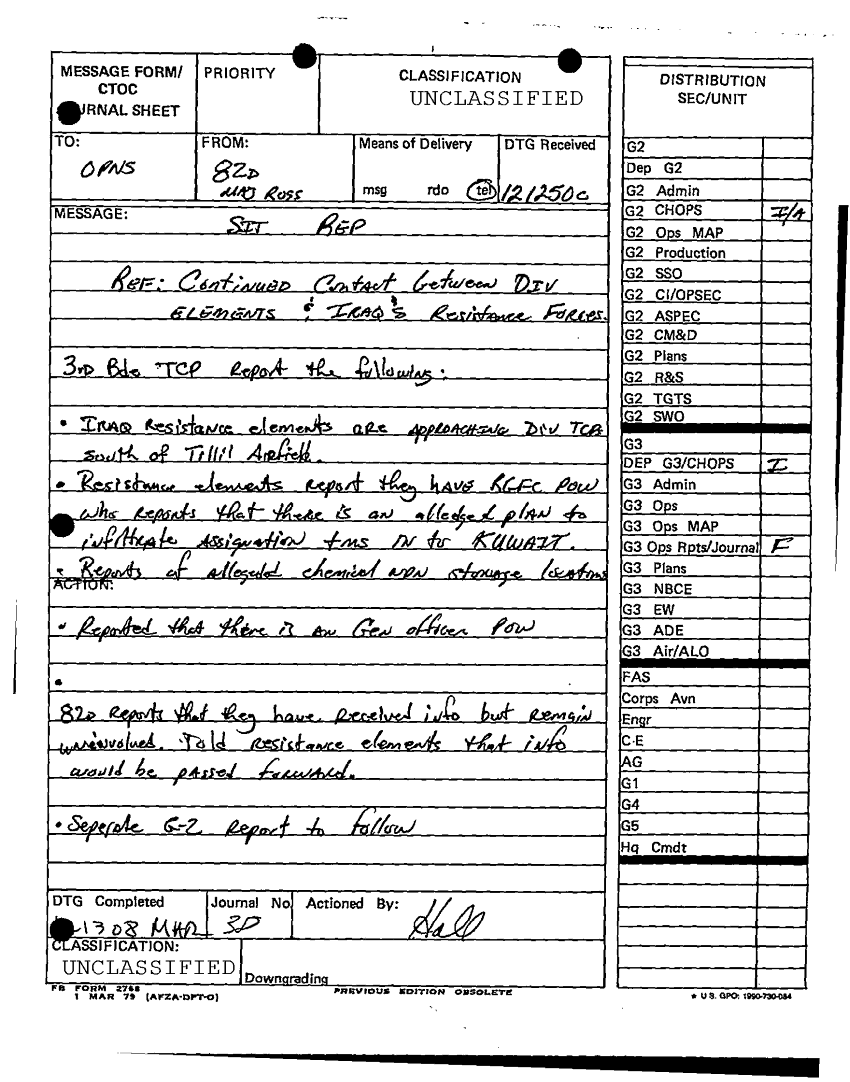 MESSAGE FORM/
CTOC
JRNAL SHEET
PRIORITY
CLASSIFICATION
UNCLASSIFIED
TO:
OPNS
FROM:
82D
MAJ ROSS
Means of Delivery
msg rdo tel
DTG Received
121250C
MESSAGE:
SIT REP
REF: CONTINUED CONTACT between DIV
ELEMENTS & IRAQ'S Resistance FORCES.
3RD Bde TCP REPORT the following:
• IRAQ Resistance elements are APPROACHING DIV TCPs
south of Tillil Airfield.
• Resistance elements report they HAVE RGFC POW
who reports that there is an alledged plan to
infiltrate assignation tms IN to KUWAIT.
• Reports of alleged chemical wpn storage locations
ACTION:
• Reported that there is an Gen officer POW
•
82D Reports that they have received info but remain
. Told resistance elements that info
would be passed forward.
• Seperate G-2 Report to follow
DTG Completed
1308 MAR
Journal No
30
Actioned By:
Hall
CLASSIFICATION:
UNCLASSIFIED
Downgrading
FB FORM 2768
1 MAR 79 (AFZA-DPT-O)
PREVIOUS EDITION OBSOLETE
DISTRIBUTION
SEC/UNIT
G2
Dep G2
G2 Admin
G2 CHOPS I/A
G2 Ops MAP
G2 Production
G2 SSO
G2 CI/OPSEC
G2 ASPEC
G2 CM&D
G2 Plans
G2 R&S
G2 TGTS
G2 SWO
G3
DEP G3/CHOPS I
G3 Admin
G3 Ops
G3 Ops MAP
G3 Ops Rpts/Journal F
G3 Plans
G3 NBCE
G3 EW
G3 ADE
G3 Air/ALO
FAS
Corps Avn
Engr
C-E
AG
G1
G4
G5
Hq Cmdt
★ U.S. GPO: 1990-730-084